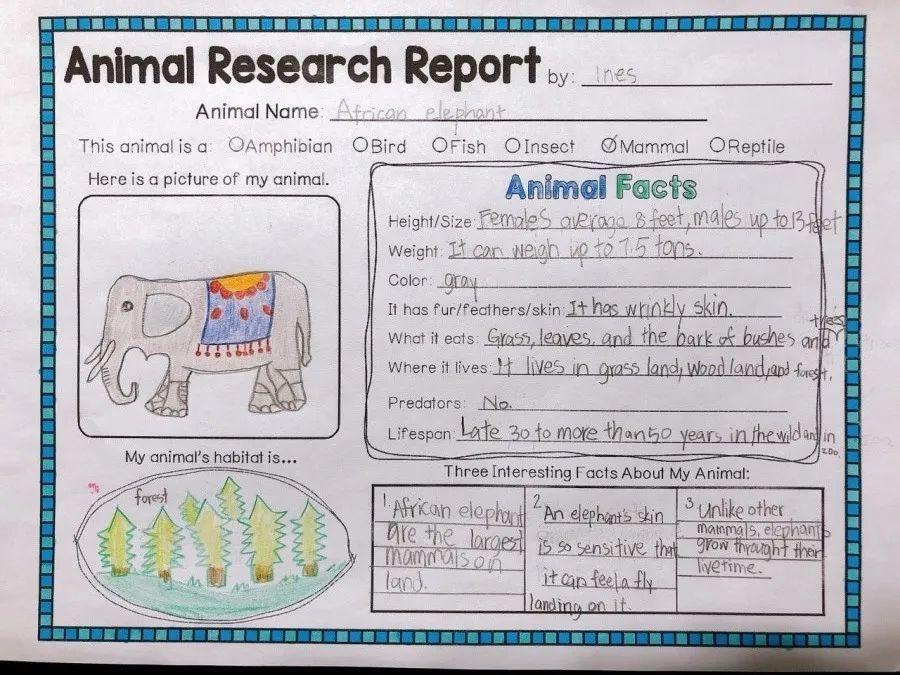 Animal Research Report by: Ines
Animal Name: African elephant
This animal is a: Amphibian Bird Fish Insect Mammal Reptile
Here is a picture of my animal.
Animal Facts
Height/Size: Females average 8 feet, males up to 13 feet
Weight: It can weigh up to 7.5 tons.
Color: gray
It has fur/feathers/skin: It has wrinkly skin.
What it eats: Grass, leaves, and the bark of bushes and trees
Where it lives: It lives in grass land, wood land, and forest.
Predators: No.
Lifespan: Late 30 to more than 50 years in the wild and in zoo.
My animal's habitat is...
forest
Three Interesting Facts About My Animal:
1. African elephant
are the largest
mammals on
land.
2. An elephant's skin
is so sensitive that
it can feel a fly
landing on it.
3. Unlike other
mammals, elephants
grow throught their
livetime.